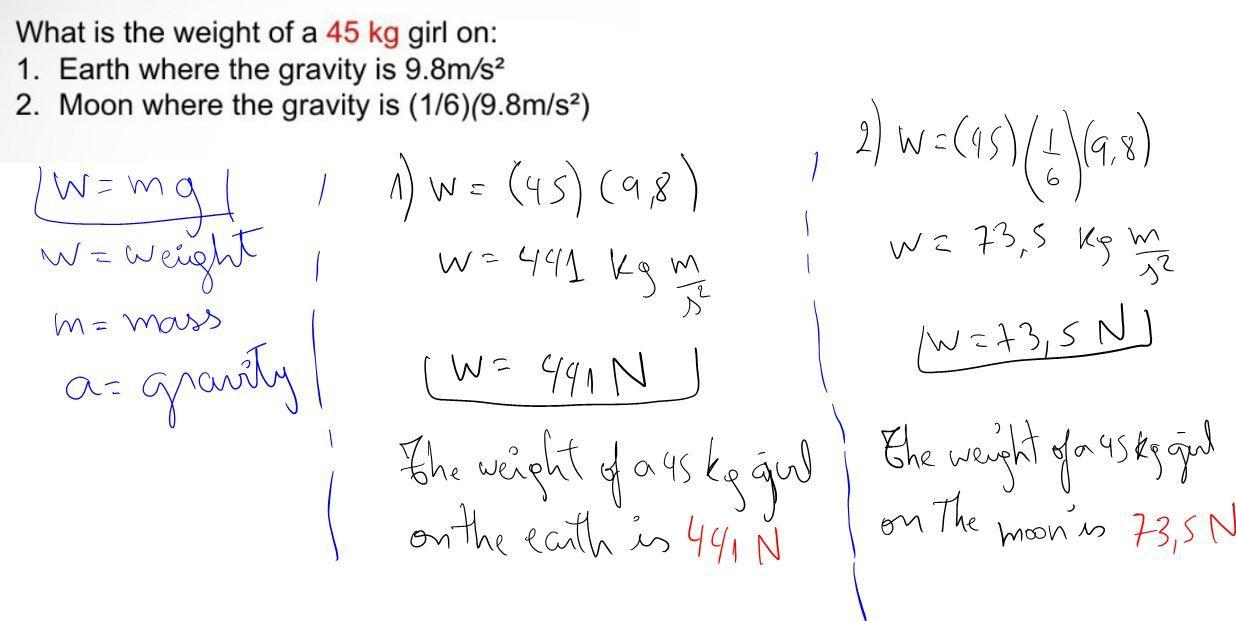 What is the weight of a 45 kg girl on:
1. Earth where the gravity is 9.8m/s²
2. Moon where the gravity is (1/6)(9.8m/s²)
W = mg
W = weight
m = mass
a = gravity
1) W = (45) (9,8)
W = 441 kg m/s²
W = 441 N
The weight of a 45 kg girl
on the earth is 441 N
2) W = (45) (1/6) (9,8)
W = 73,5 kg m/s²
W = 73,5 N
The weight of a 45 kg girl
on the moon is 73,5 N